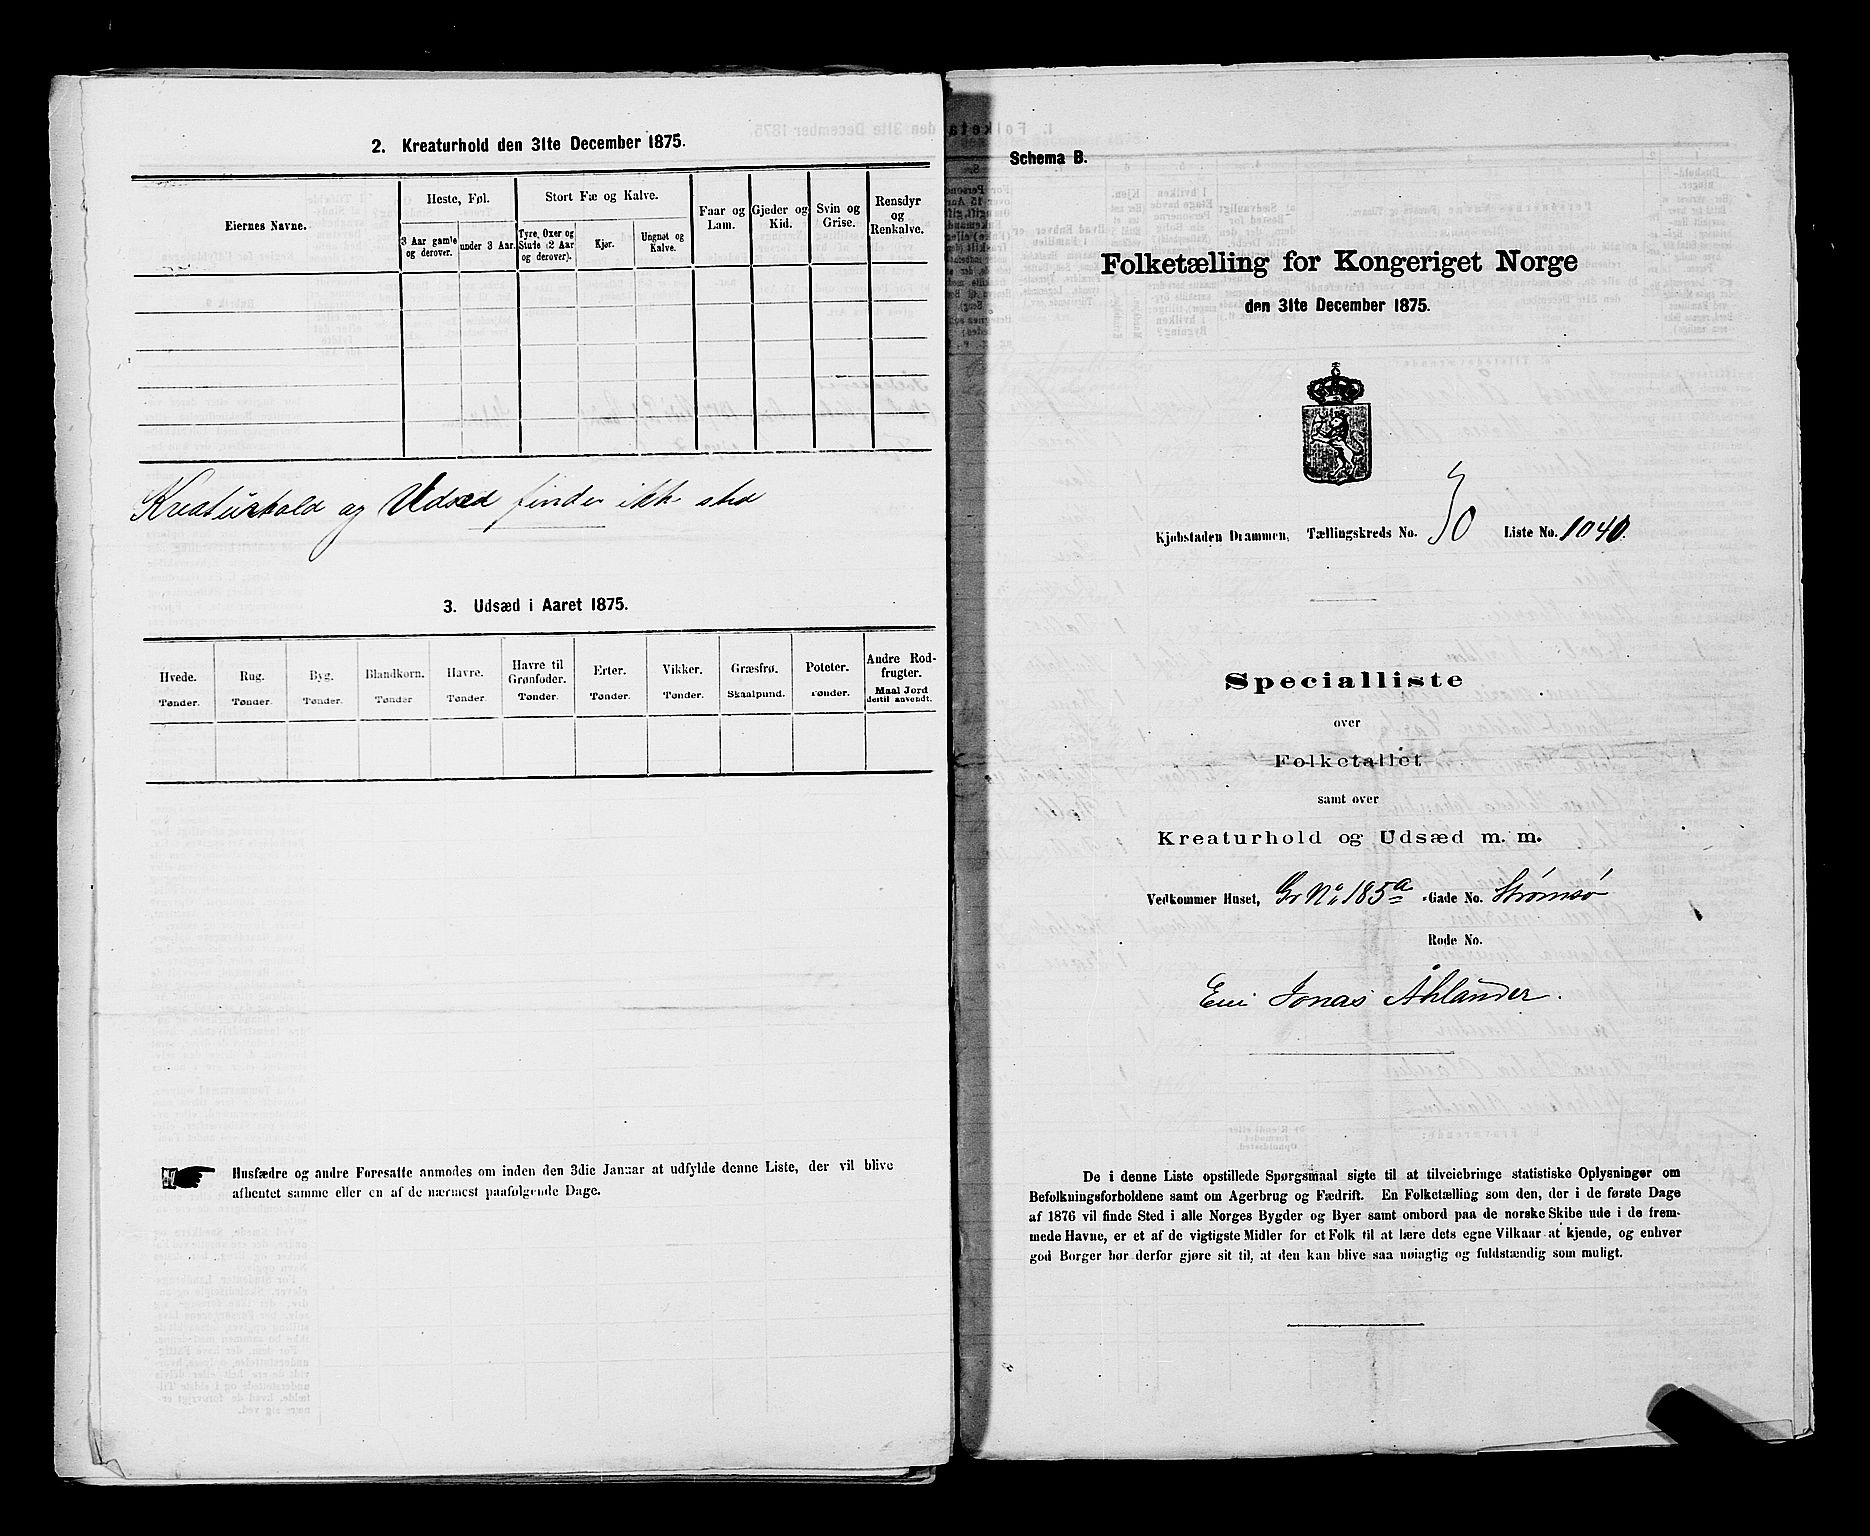 2. Kreaturhold den 31te December 1875.
Eiernes Navne.
Heste, Føl.
3 Aar gamle og derover.
under 3 Aar.
Stort Fæ og Kalve.
Tyre, Oxer og Stude (2 Aar og derover).
Kjør.
Ungnøt og Kalve.
Faar og Lam.
Gjeder og Kid.
Svin og Grise.
Rensdyr og Renkalve.
Kreaturhold og Udsæd finder ikke sted
3. Udsæd i Aaret 1875.
Hvede. Tønder.
Rug. Tønder.
Byg. Tønder.
Blandkorn. Tønder
Havre. Tønder.
Havre til Grønfoder. Tønder.
Erter. Tønder.
Vikker. Tønder.
Græsfrø. Skaalpund.
Poteter. Tønder.
Andre Rodfrugter. Maal Jord dertil anvendt.
Husfædre og andre Foresatte anmodes om inden den 3die Januar at udfylde denne Liste, der vil blive
afhentet samme eller en af de nærmest paafølgende Dage.
Schema B.
Folketælling for Kongeriget Norge
den 31te December 1875.
Kjøbstaden Drammen, Tællingskreds No. 30 Liste No. 1040.
Specialliste
over
Folketallet
samt over
Kreaturhold og Udsæd m. m.
Vedkommer Huset, Gr No 185a Gade No. Strømsø
Rode No.
Eier Jonas Åhlander.
De i denne Liste opstillede Spørgsmaal sigte til at tilveiebringe statistiske Oplysninger om
Befolkningsforholdene samt om Agerbrug og Fædrift. En Folketælling som den, der i de første Dage
af 1876 vil finde Sted i alle Norges Bygder og Byer samt ombord paa de norske Skibe ude i de frem-
mede Havne, er et af de vigtigste Midler for et Folk til at lære dets egne Vilkaar at kjende, og enhver
god Borger bør derfor gjøre sit til, at den kan blive saa nøiagtig og fuldstændig som muligt.